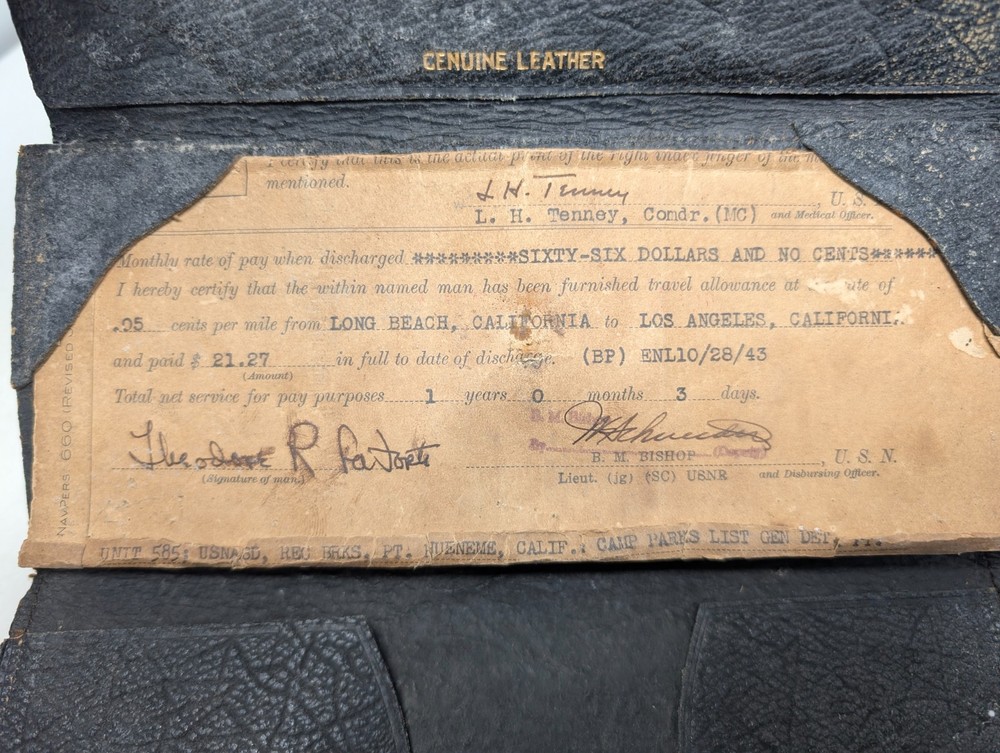 GENUINE LEATHER
I certify that this is the actual print of the right index finger of the m
mentioned.
L. H. Tenney
, U. S.
L. H. Tenney, Comdr.(MC) and Medical Officer.
Monthly rate of pay when discharged *********SIXTY-SIX DOLLARS AND NO CENTS******
I hereby certify that the within named man has been furnished travel allowance at rate of
.05 cents per mile from LONG BEACH, CALIFORNIA to LOS ANGELES, CALIFORNI
and paid $ 21.27 in full to date of discharge. (BP) ENL10/28/43
(Amount)
Total net service for pay purposes 1 years 0 months 3 days.
B. M.
Theodore R
By (Deputy)
B. M. BISHOP, U. S. N.
(Signature of man.)
Lieut. (jg) (SC) USNR and Disbursing Officer.
NAVPERS 660 (REVISED
UNIT 585; REC BRKS. PT. NUENEME, CALIF.; CAMP PARKS LIST GEN DET,